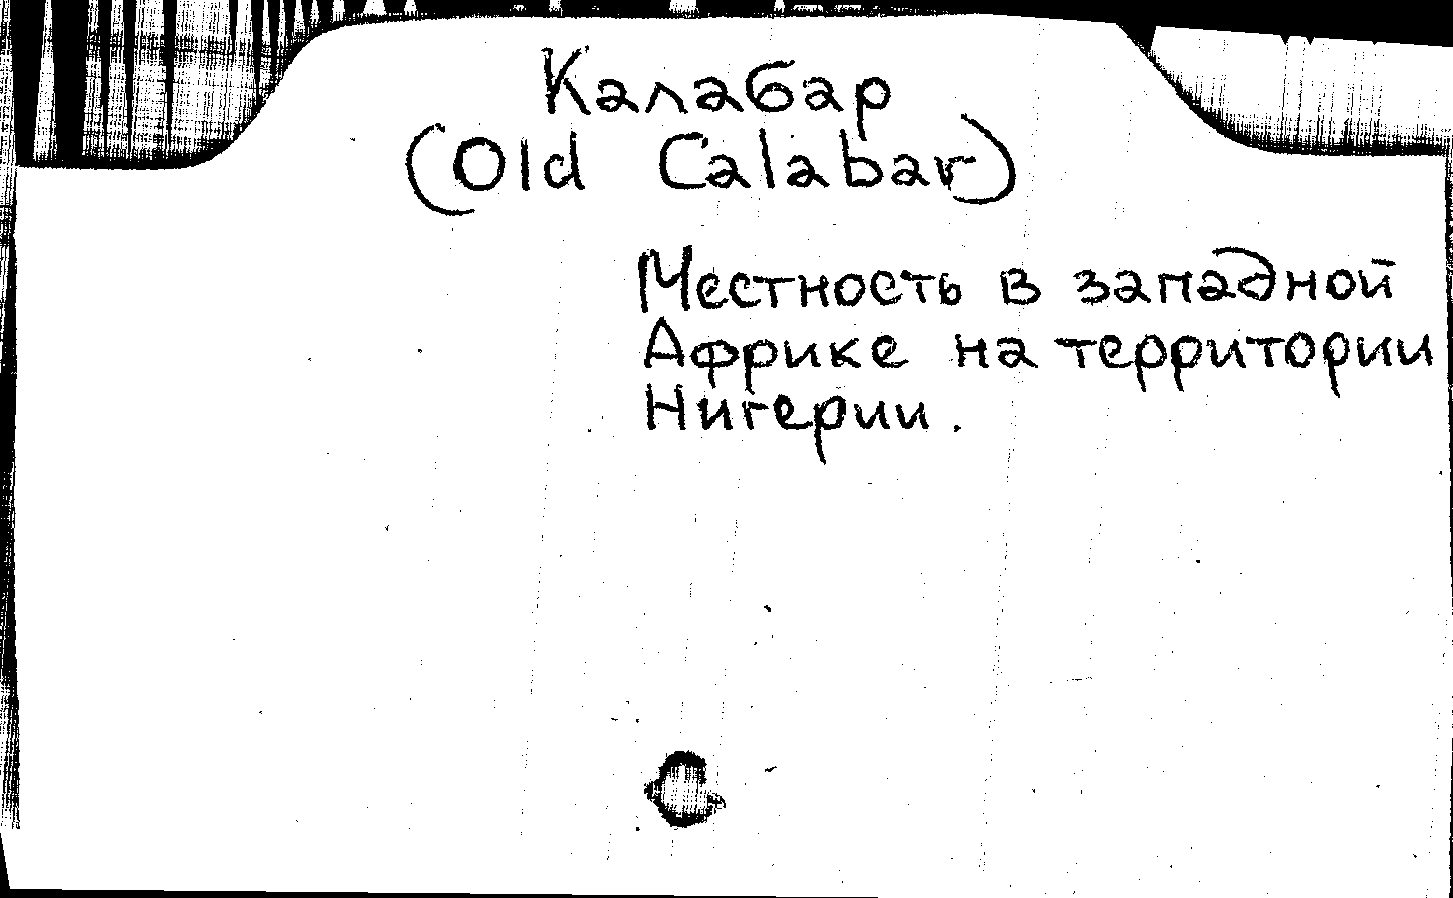 Калабар
(Old Calabar)
Местность в западной
Африке на территории
Нигерии.